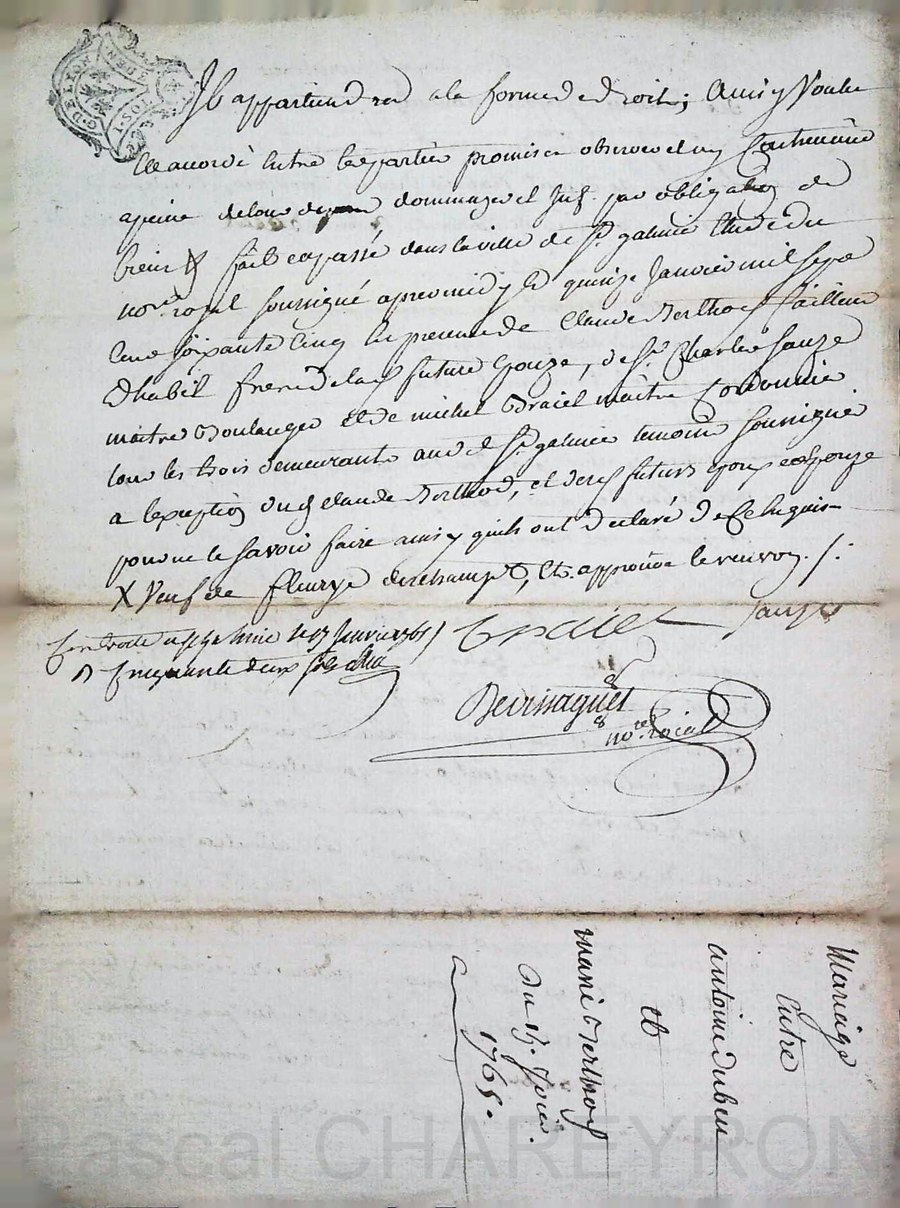 G. DE LYON
DEUX
SOLS
Il appartiendra a la forme de droit; Ainsy Voulu
et accordé entre les parties promis observer et ny Contrevenir
a peine de tous depens dommages et Int. par obligation de
biens fait et passé dans la ville de St galmier Etude du
nore. royal soussigné apres midy le quinze Janvier mil sept
Cent soixante Cinq En presence de Claude Berthod tailleur
d'habit frere de lad future Epouze, de Sr. Charles Sauze
maître Boulanger et de michel Braiel maître Cordonnier
tous les trois demeurants aud St galmier temoins soussignés
a lexception dud Claude Berthod, et desd futurs Epoux et Epouze
pour ne le savoir faire ainsy quils ont declaré de Ce Enquis
X Veuf de fleurye deschamps, Et. approuvé le renvoy ./.
Controlé a St galmie le 17 Janvier 1765
R Cinquante deux sols
Braiel Sauze
Devissaguet
nore. roial
Mariage
Entre
antoine dubeu
et
marie Berthod
Du 15. Jvier.
1765.
Pascal CHAREYRON